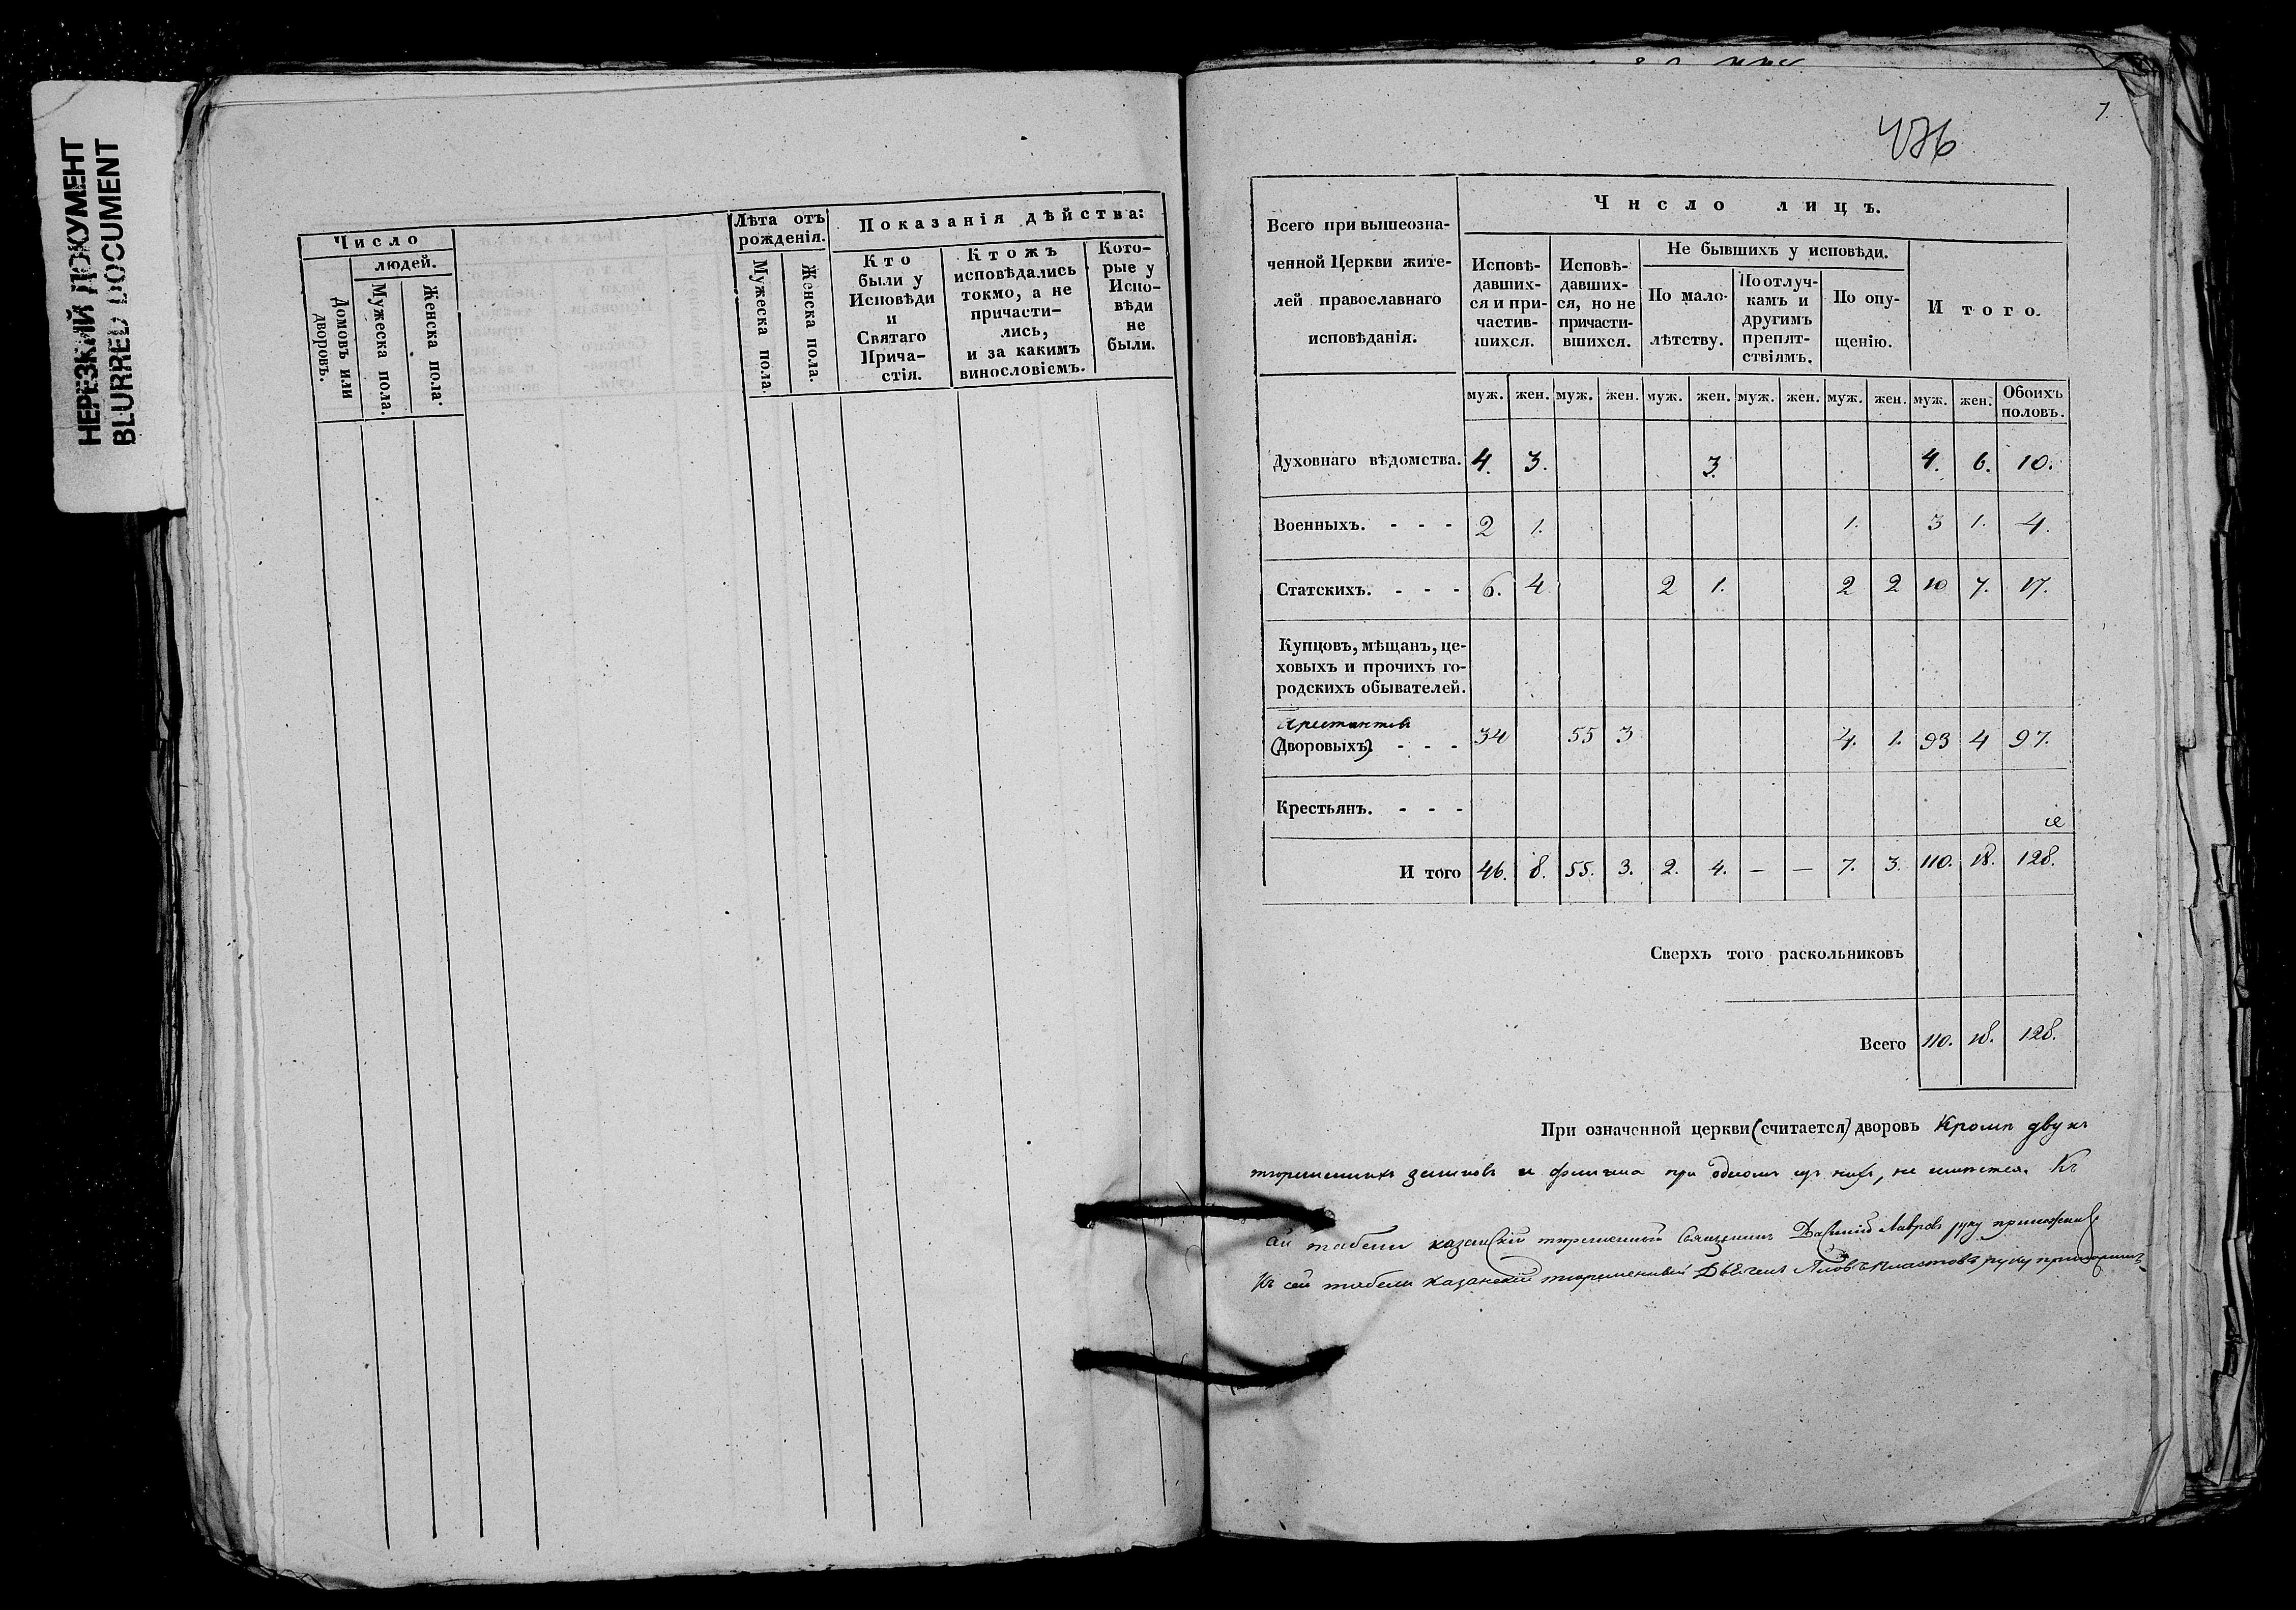 НЕРЕЗКИЙ ДОКУМЕНТ
BLURRED DOCUMENT
Число
людей.
Домовъ или дворовъ.
Мужеска пола.
Женска пола.
Лѣта отъ рожденія.
Мужеска пола.
Женска пола.
Показанія дѣйства:
Кто
были у
Исповѣди
и
Святаго
Прича-
стія.
Ктожъ
исповѣдались
токмо, а не
причасти-
лись,
и за какимъ
винословіемъ.
Кото-
рые у
Испо-
вѣди
не
были.
7.
476
Всего при вышеозна-
ченной Церкви жите-
лей православнаго
исповѣданія.
Число лицъ.
Исповѣ-
давших-
ся и при-
частив-
шихся.
Исповѣ-
давших-
ся, но не
причасти-
вшихся.
Не бывшихъ у исповѣди.
По мало-
лѣтству.
По отлуч-
камъ и
другимъ
препят-
ствіямъ.
По опу-
щенію.
Итого.
муж. жен. муж. жен. муж. жен. муж. жен. муж. жен. муж. жен. Обоихъ половъ.
Духовнаго вѣдомства. 4. 3. 3. 4. 6. 10.
Военныхъ. - - - 2 1. 1. 3 1. 4.
Статскихъ. - - - 6. 4 2 1. 2 2 10 7. 17.
Купцовъ, мѣщанъ, це-
ховыхъ и прочихъ го-
родскихъ обывателей.
Арестантовъ
(Дворовыхъ) - - - 34 55 3 4. 1. 93 4 97.
Крестьянъ. - - -
И того 46. 8. 55. 3. 2. 4. — — 7. 3. 110. 18. 128.
Сверхъ того раскольниковъ
Всего 110. 18. 128.
При означенной церкви (считается) дворовъ Кромѣ двухъ
тюремныхъ замковъ и флигиля при одномъ изъ нихъ, не имѣется. Къ
сей табели казанскій тюремный Священникъ Лавровъ руку приложилъ
Къ сей табели казанскій тюремный руку приложилъ